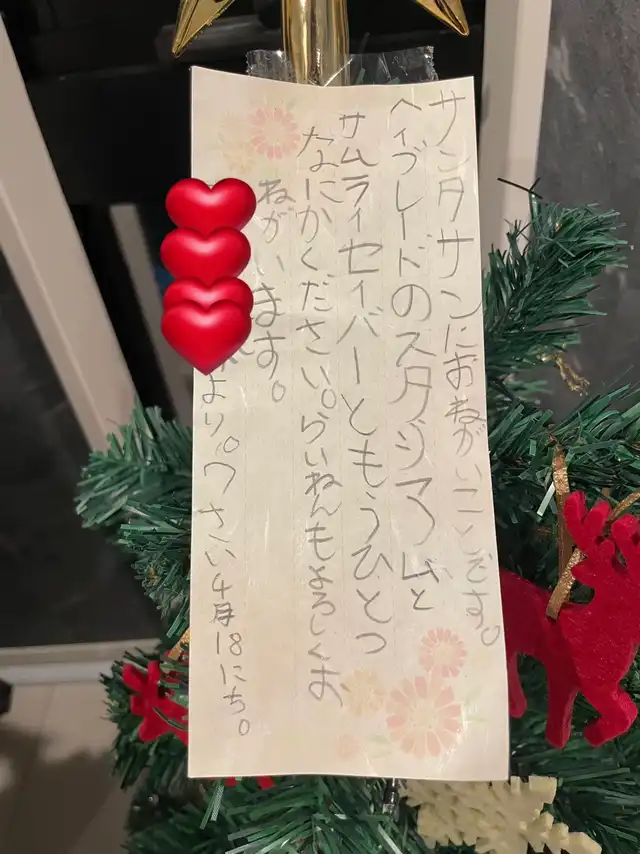 サンタサンにおねがいことです。
ヘイブレードのスタジアムと
サムライセイバーともうひとつ
なにかください。らいねんもよろしくお
ねがいます。
より。7さい4月18にち。